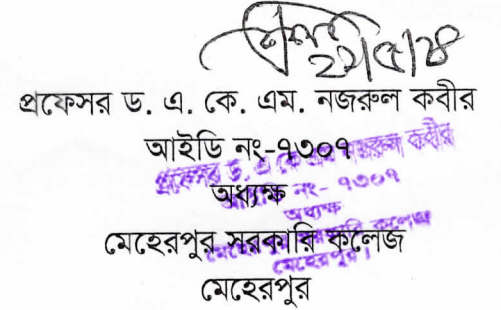 ২২/৫/২৪
প্রফেসর ড. এ. কে. এম. নজরুল কবীর
আইডি নং-৭৩০৭
অধ্যক্ষ
মেহেরপুর সরকারি কলেজ
মেহেরপুর
প্রফেসর ড. এ কে এম নজরুল কবীর
আইডি নং- ৭৩০৭
অধ্যক্ষ
মেহেরপুর সরকারি কলেজ
মেহেরপুর।